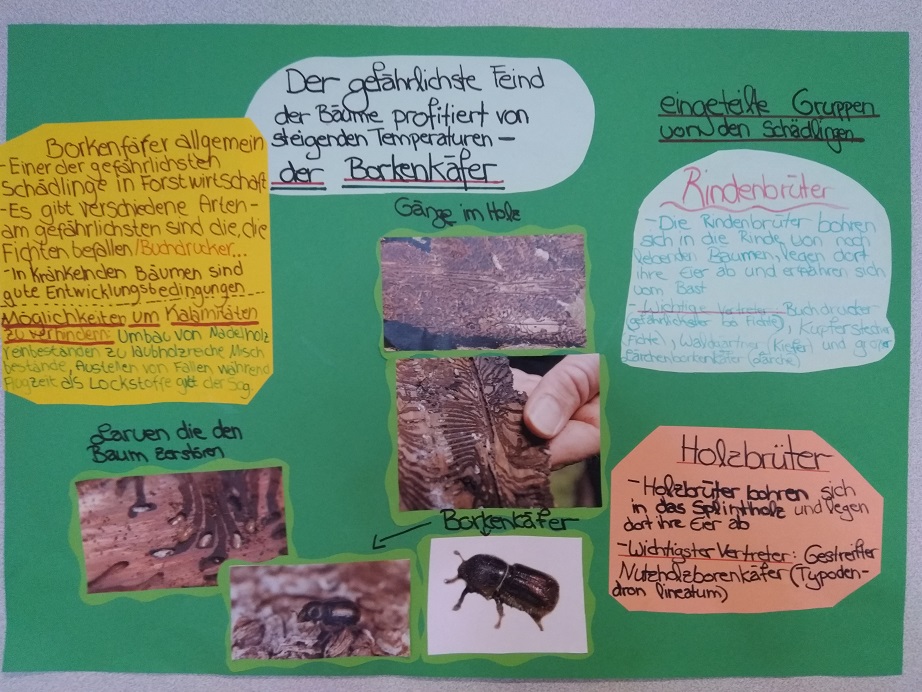 Der gefährlichste Feind
der Bäume profitiert von
steigenden Temperaturen -
der Borkenkäfer
Borkenfäfer allgemein
-Einer der gefährlichsten
Schädlinge in Forstwirtschaft
-Es gibt verschiedene Arten-
am gefährlichsten sind die, die
Fichten befallen/Buchdrucker...
-In Kränkelnden Bäumen sind
gute Entwicklungsbedingungen
Möglichkeiten um Kalamitäten
zu verhindern: Umbau von Nadelholz
reinbeständen zu laubholzreiche Misch
bestände, Austellen von Fallen während
Flugzeit als Lockstoffe gilt der Sog.
Gänge im Holz
Larven die den
Baum zerstören
Borkenkäfer
eingeteilte Gruppen
von den Schädlingen
Rindenbrüter
-Die Rindenbrüter bohren
sich in die Rinde von noch
lebenden Bäumen, legen dort
ihre Eier ab und ernähren sich
vom Bast
-Wichtige Vertreter: Buchdrucker
gefährlichster bei Fichte), Kupferstecher
(Fichte), Waldgärtner (Kiefer) und großer
Lärchenborkenkäfer (Lärche)
Holzbrüter
-Holzbrüter bohren sich
in das Splintholz und legen
dort ihre Eier ab
-Wichtigster Vertreter: Gestreifter
Nutzholzborenkäfer (Typoden-
dron lineatum)